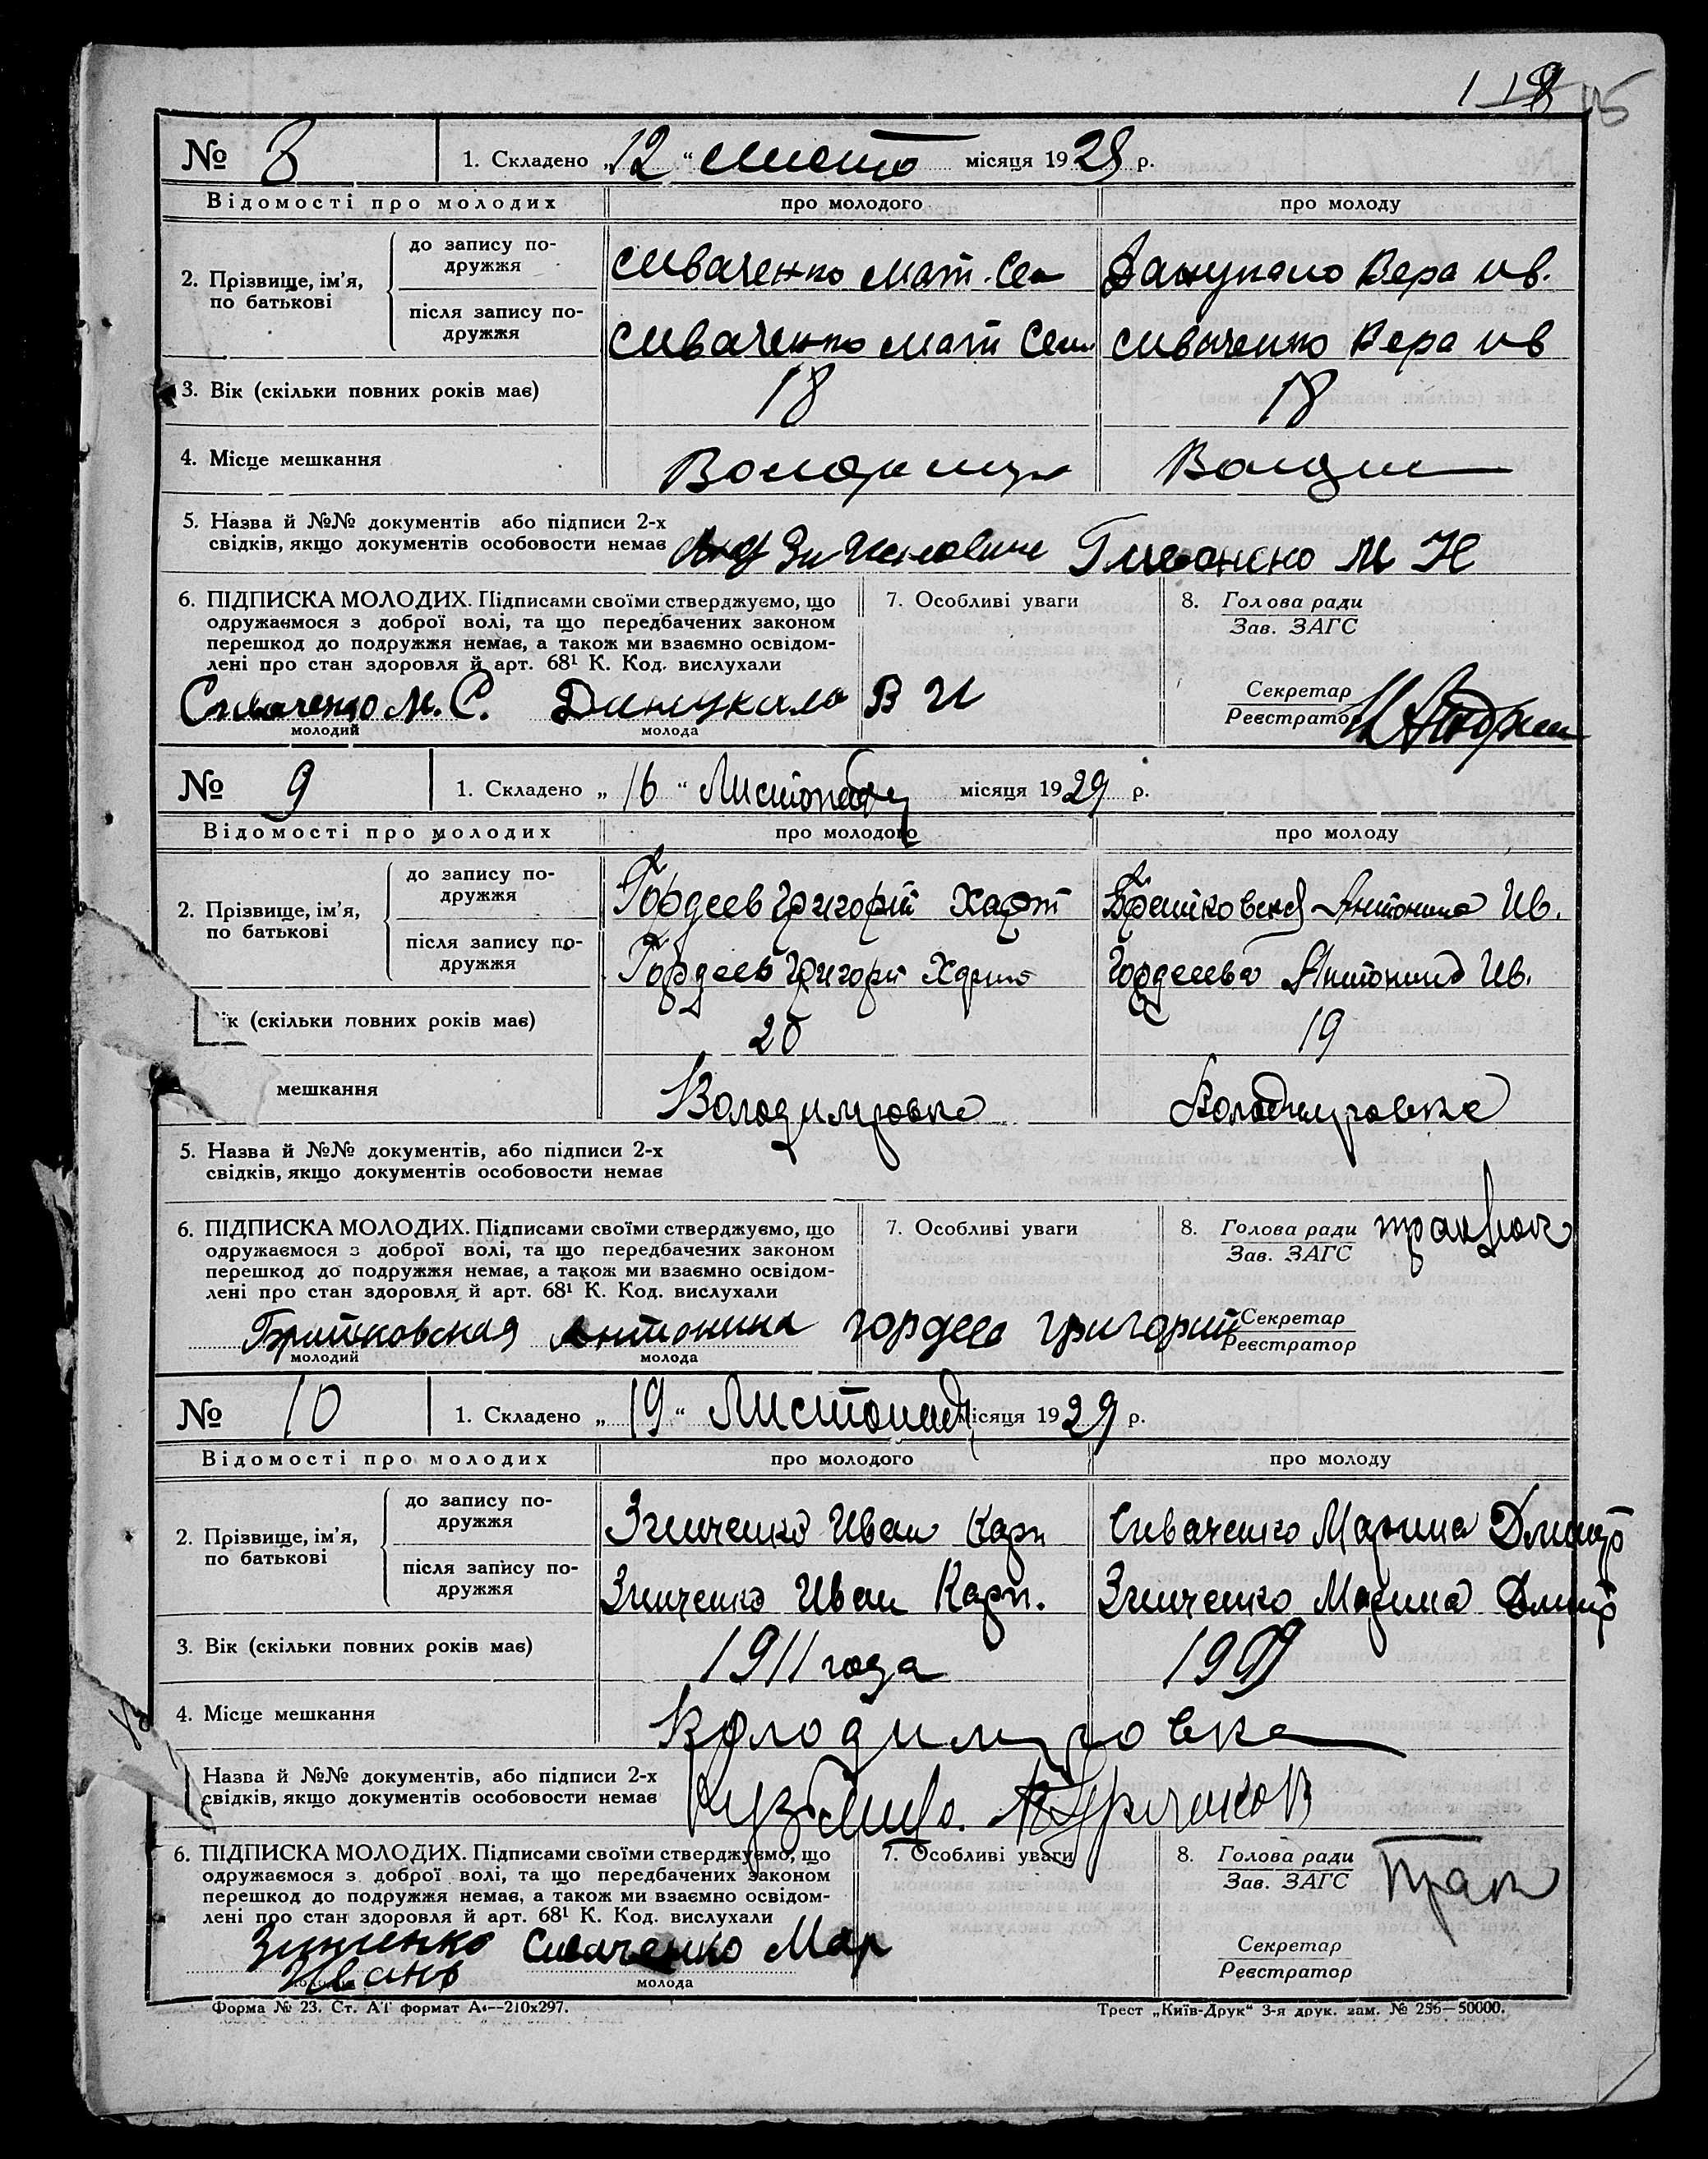 118 15
№ 8 1. Складено „12“ листо місяця 1928 р.
Відомості про молодих про молодого про молоду
2. Прізвище, ім'я, по батькові
до запису подружжя Сиваченко Мат. Сем Данукало Вера Ив.
після запису подружжя Сиваченко Мат Сем Сиваченко Вера Ив
3. Вік (скільки повних років має) 18 18
4. Місце мешкання
5. Назва й №№ документів або підписи 2-х
свідків, якщо документів особовости немає М Н
6. ПІДПИСКА МОЛОДИХ. Підписами своїми стверджуємо, що
одружаємося з доброї волі, та що передбачених законом
перешкод до подружжя немає, а також ми взаємно освідом-
лені про стан здоровля й арт. 68¹ К. Код. вислухали
7. Особливі уваги
8. Голова ради
Зав. ЗАГС
Секретар
Реєстратор
Сиваченко М. С. Данукало В И
молодий молода
№ 9 1. Складено „16“ Листопаду місяця 1929 р.
Відомості про молодих про молодого про молоду
2. Прізвище, ім'я, по батькові
до запису подружжя Гордеев Григорій Харит Братковская Антонина Ив.
після запису подружжя Гордеев Григорій Харит Гордеева Антонина Ив.
ік (скільки повних років має) 20 19
мешкання Володимировка Володимировка
5. Назва й №№ документів, або підписи 2-х
свідків, якщо документів особовости немає
6. ПІДПИСКА МОЛОДИХ. Підписами своїми стверджуємо, що
одружаємося з доброї волі, та що передбачених законом
перешкод до подружжя немає, а також ми взаємно освідом-
лені про стан здоровля й арт. 68¹ К. Код. вислухали
7. Особливі уваги
8. Голова ради
Зав. ЗАГС
Секретар
Реєстратор
Братковская Антонина Гордеев Григорий
молодий молода
№ 10 1. Складено „19“ Листопад місяця 1929 р.
Відомості про молодих про молодого про молоду
2. Прізвище, ім'я, по батькові
до запису подружжя Зинченко Иван Карп Сиваченко Марина Дмитр
після запису подружжя Зинченко Иван Карп. Зинченко Марина Дмитр
3. Вік (скільки повних років має) 1911 года 1909
4. Місце мешкання Володимировка
Назва й №№ документів, або підписи 2-х
свідків, якщо документів особовости немає
6. ПІДПИСКА МОЛОДИХ. Підписами своїми стверджуємо, що
одружаємося з доброї волі, та що передбачених законом
перешкод до подружжя немає, а також ми взаємно освідом-
лені про стан здоровля й арт. 68¹ К. Код. вислухали
7. Особливі уваги
8. Голова ради
Зав. ЗАГС
Секретар
Реєстратор
Зинченко Сиваченко Мар
Иванъ
молода
Форма № 23. Ст. АТ формат А4—210х297. Трест „Київ-Друк“ 3-я друк. зам. № 256—50000.